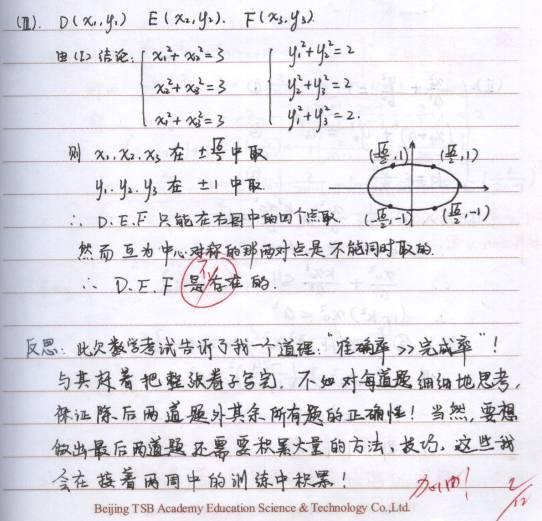 (Ⅲ). D(x₁,y₁) E(x₂,y₂). F(x₃,y₃).
由(Ⅰ)结论: { x₁²+x₂²=3 { y₁²+y₂²=2
x₂²+x₃²=3 y₂²+y₃²=2
x₁²+x₃²=3 y₁²+y₃²=2.
则 x₁,x₂,x₃ 在 ±√6/2 中取
y₁,y₂,y₃ 在 ±1 中取
(-√6/2,1) (√6/2,1)
(-√6/2,-1) (√6/2,-1)
∴ D.E.F 只能在右图中的四个点取
然而互为中心对称的那两对点是不能同时取的.
∴ D.E.F 是不存在的.
反思: 此次数学考试告诉了我一个道理:"准确率>>完成率"!
与其赶着把整张卷子写完, 不如对每道题细细地思考,
保证除后两道题外其余所有题的正确性! 当然, 要想
做出最后两道题还需要积累大量的方法、技巧. 这些我
会在接着两周中的训练中积累!
加油! 2/12
Beijing TSB Academy Education Science & Technology Co.,Ltd.